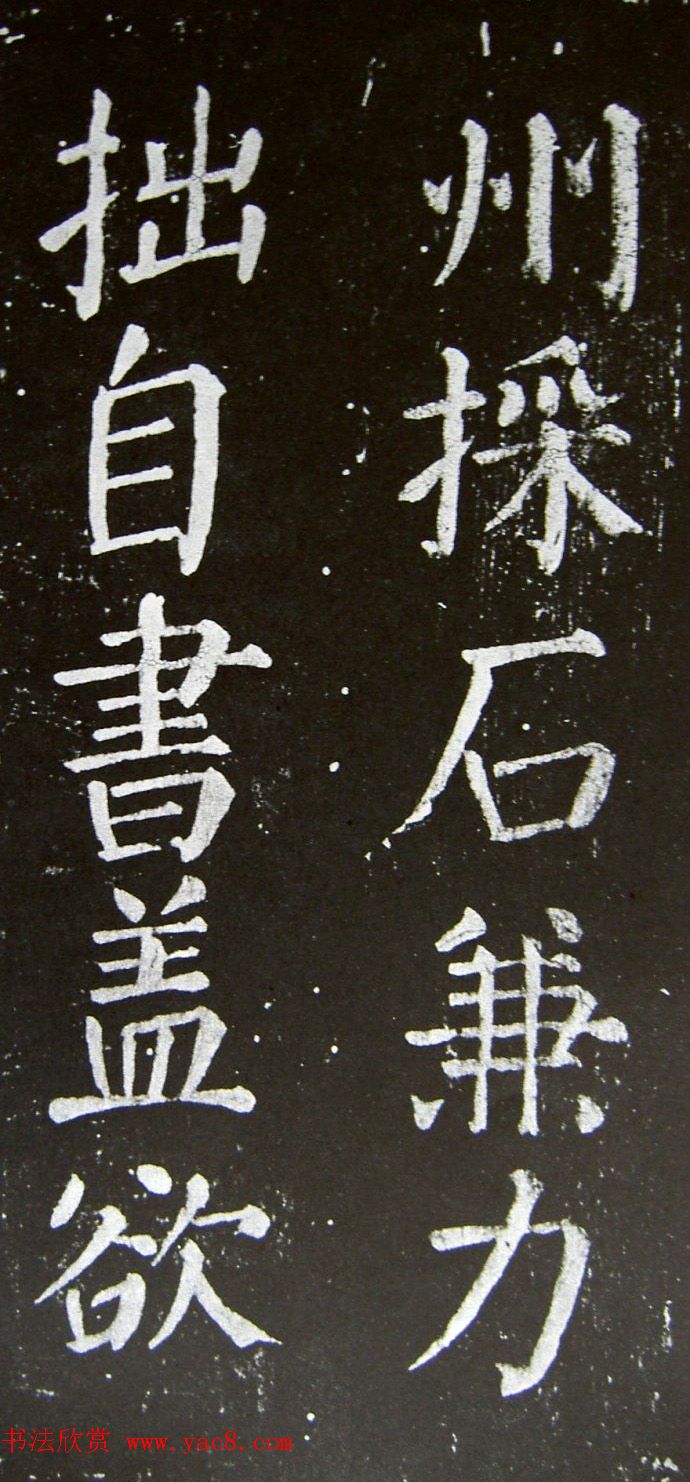 州採石兼力
拙自書盖欲
书法欣赏 www.yac8.com